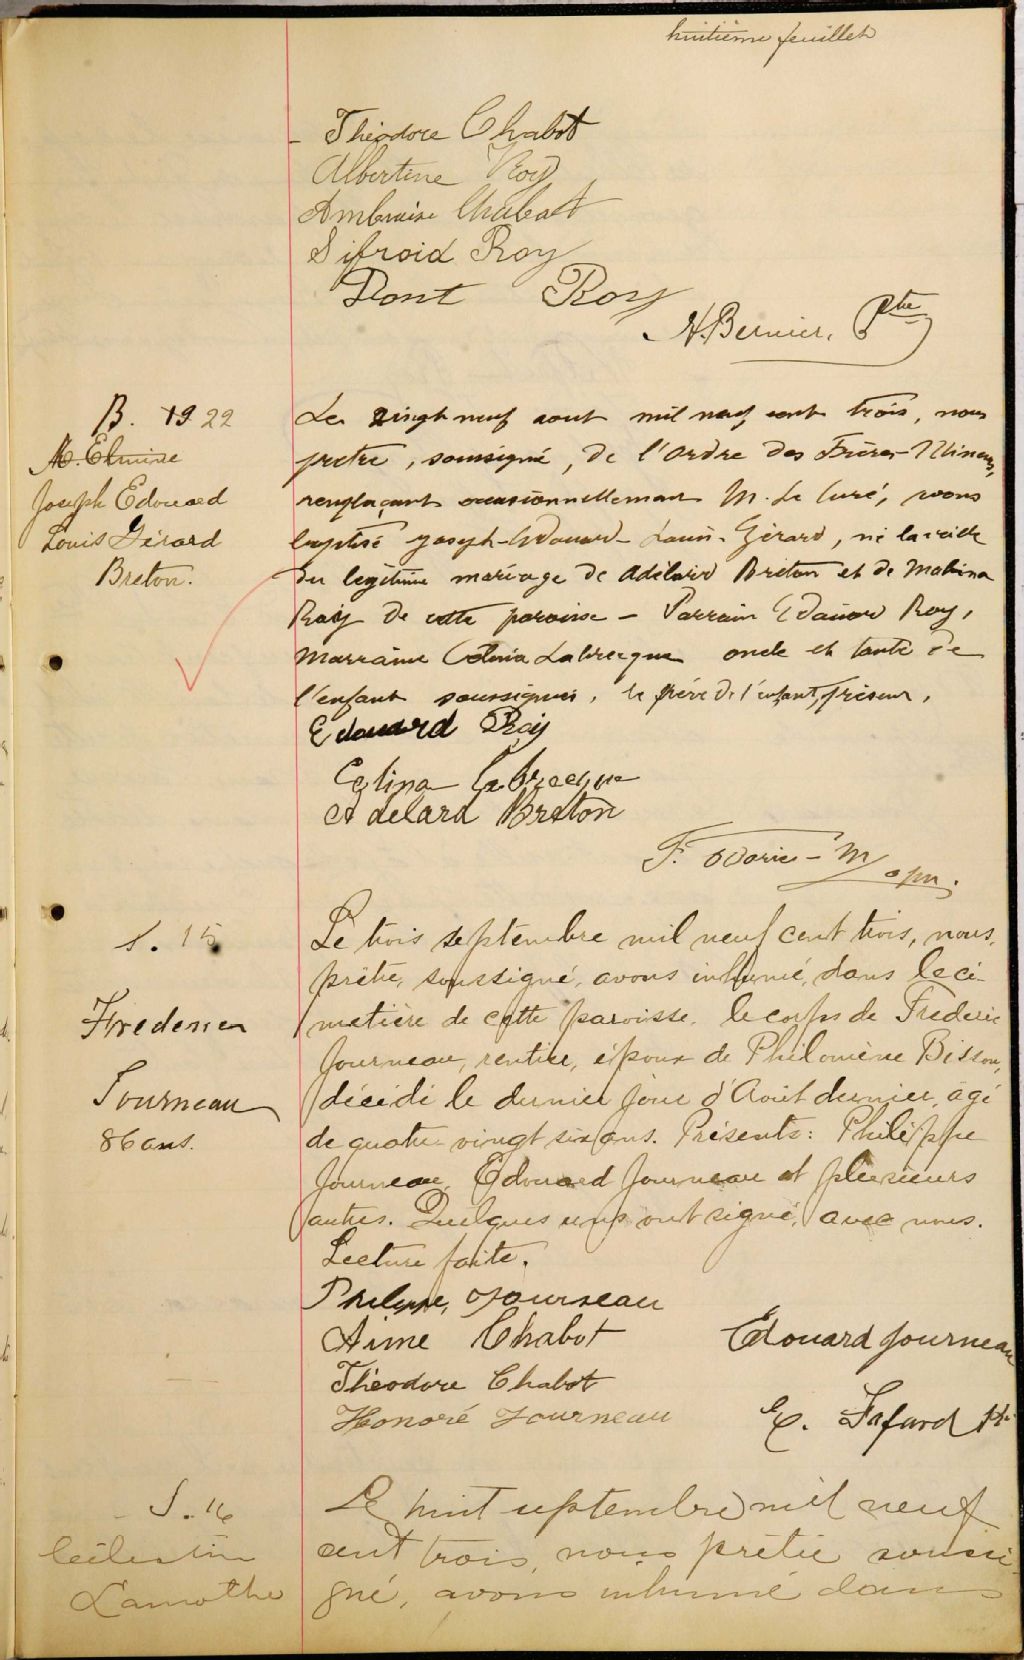 huitième feuillet
Théodore Chabot
Albertine Roy
Ambroise Chabot
Sifroid Roy
Dont Roy
N. Bernier, Ptre
B. 19 22
M. Elmire
Joseph Edouard
Louis Gérard
Breton.
Le vingt neuf aout mil neuf cent trois, nous
pretre, soussigné, de l'Ordre des Frères-Mineurs,
remplaçant occasionnellement M. le Curé, avons
baptisé Joseph-Edouard-Louis-Gérard, né la veille
du légitime mariage de Adélard Breton et de Malvina
Roy de cette paroisse - Parrain Edouard Roy,
Marraine Labrecque oncle et tante de
l'enfant soussignés, le père de l'enfant, présent.
Edouard Roy
Labrecque
Adelard Breton
F. M. ofm.
S. 15
Frederic
Journeau
86 ans.
Le trois septembre mil neuf cent trois, nous,
prêtre, soussigné, avons inhumé, dans le ci-
metière de cette paroisse, le corps de Frederic
Journeau, rentier, époux de Philomène Bisson,
décédé le dernier jour d'Août dernier, âgé
de quatre vingt six ans. Présents: Philippe
Journeau, Edouard Journeau et plusieurs
autres. Quelques uns ont signé, avec nous.
Lecture faite.
Philippe, Journeau
Aime Chabot
Edouard Journeau
Théodore Chabot
Honoré Journeau
E. Fafard Ptr
S. 16
Célestin
Lamothe
Le huit septembre mil neuf
cent trois, nous prêtre soussi
gné, avons inhumé dans